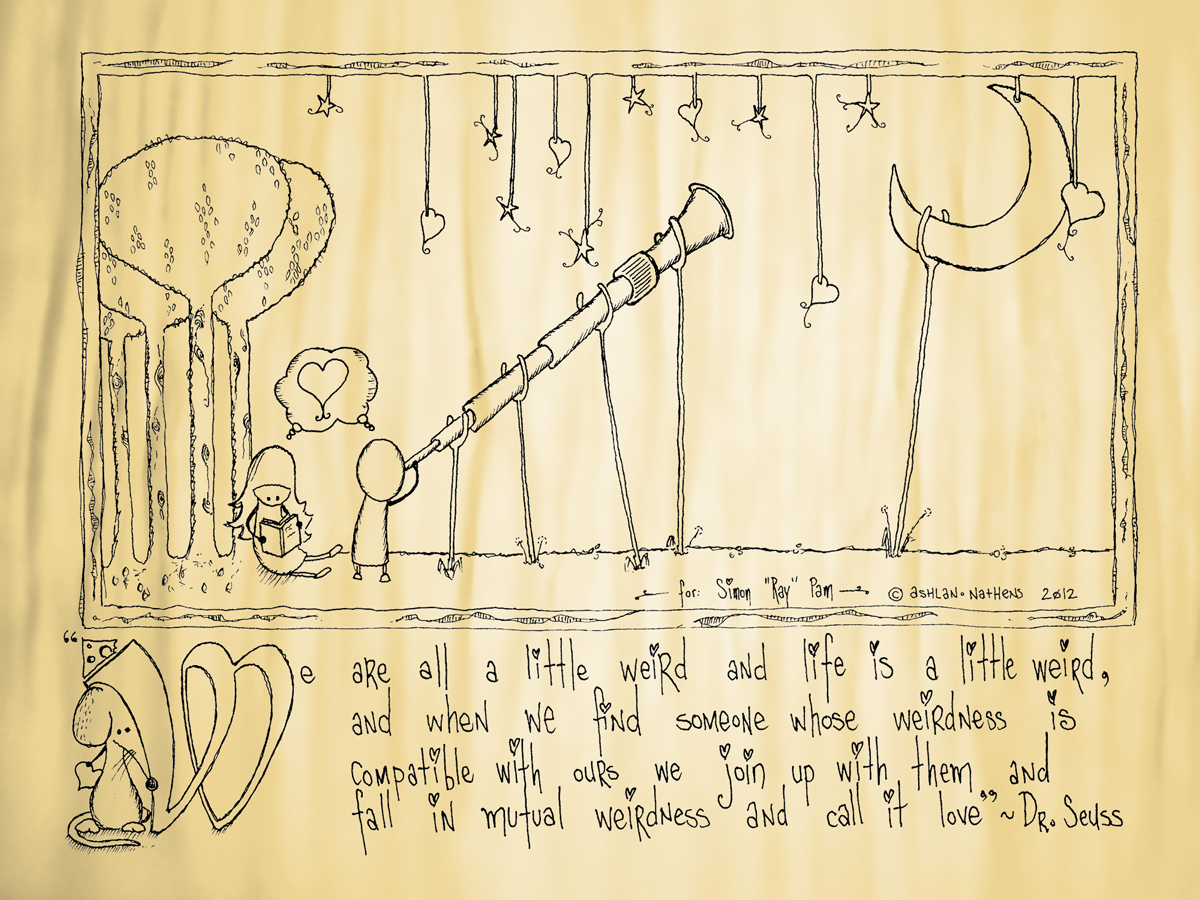 for: Simon "Ray" Pam © ASHLAN·NATHENS 2012
“We are all a little weird and life is a little weird,
and when we find someone whose weirdness is
compatible with ours we join up with them and
fall in mutual weirdness and call it love” ~ Dr. Seuss